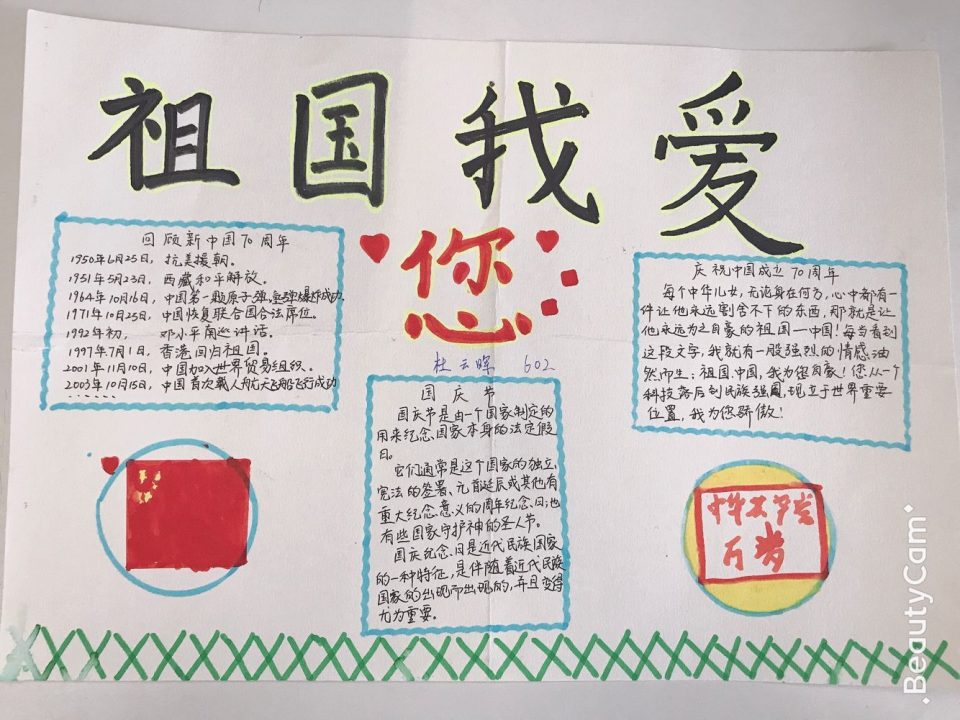 祖国我爱
您
杜云晖 602
回顾新中国70周年
1950年6月25日，抗美援朝。
1951年5月23日，西藏和平解放。
1964年10月16日，中国第一颗原子弹爆炸成功.
1971年10月25日，中国恢复联合国合法席位。
1992年初，邓小平南巡讲话。
1997年7月1日，香港回归祖国。
2001年11月10日，中国加入世界贸易组织。
2003年10月15日，中国首次载人航天飞船飞行成功
......
国庆节
国庆节是由一个国家制定的
用来纪念国家本身的法定假
日。
它们通常是这个国家的独立、
宪法的签署、元首诞辰或其他有
重大纪念意义的周年纪念日;也
有些国家守护神的圣人节。
国庆纪念日是近代民族国家
的一种特征，是伴随着近代民族
国家的出现而出现的，并且变得
尤为重要。
庆祝中国成立70周年
每个中华儿女，无论身在何方，心中都有一
件让他永远割舍不下的东西，那就是让
他永远为之自豪的祖国—中国！每当看到
这段文字，我就有一股强烈的情感油
然而生：祖国，中国，我为您自豪！您从一个
科技落后到民族强国，现立于世界重要
位置，我为您骄傲！
万岁
BeautyCam